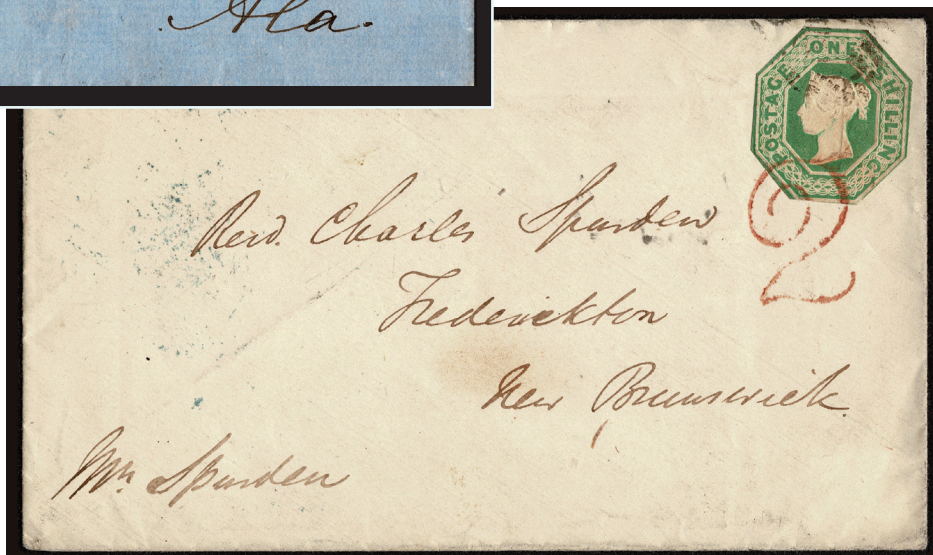 Ala.
POSTAGE ONE SHILLING
2
Revd. Charles Spurden
Frederickton
New Brunswick.
Mr. Spurden